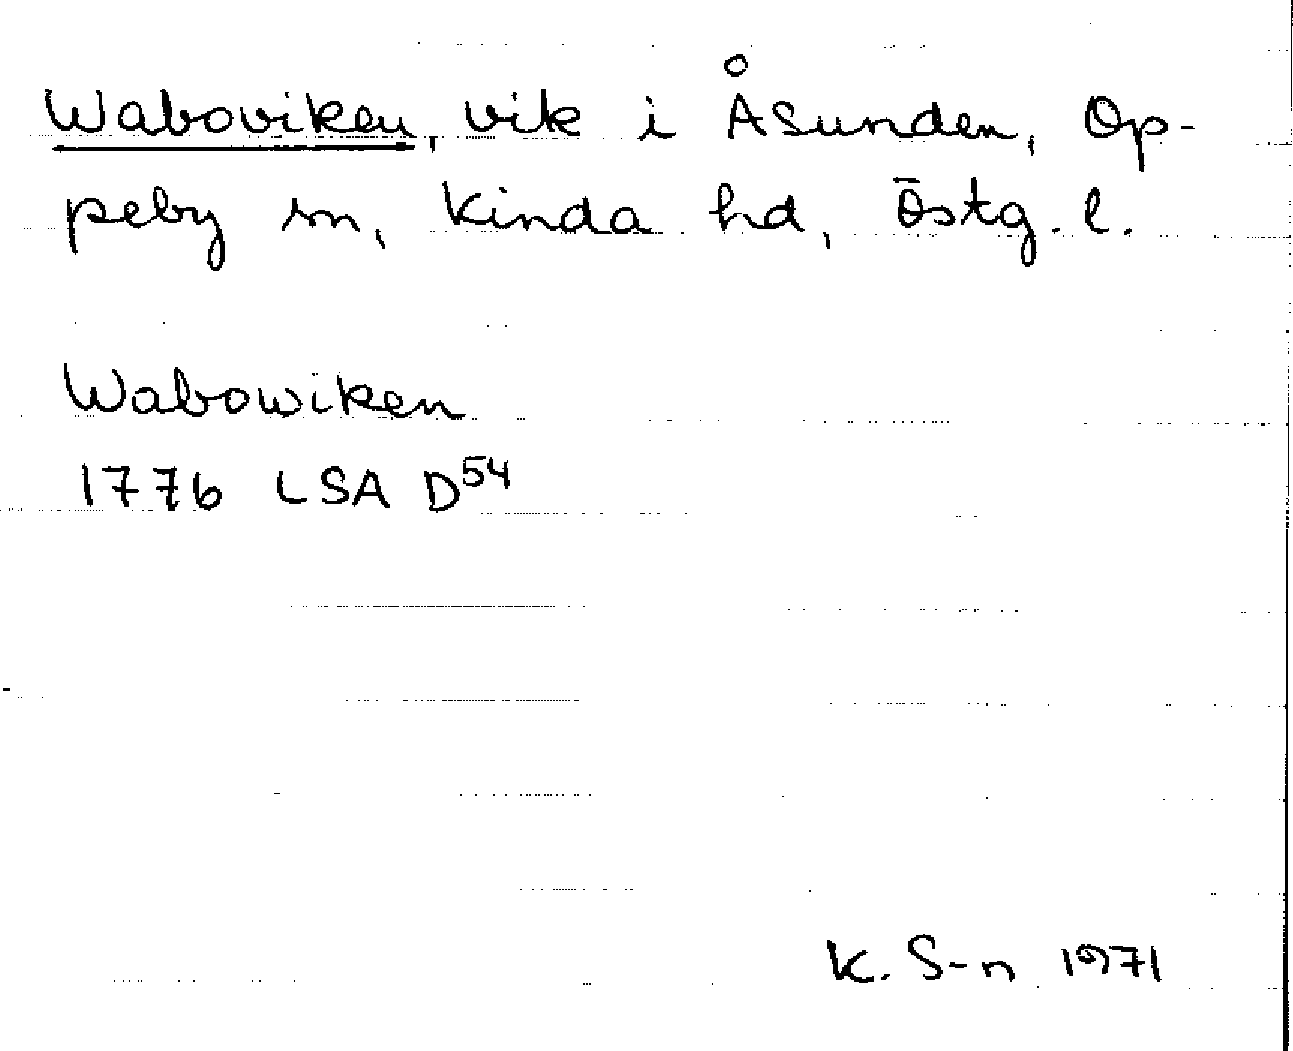 Waboviken, vik i Åsunden, Op-
peby sn, Kinda hd, Östg. l.
Wabowiken
1776 LSA D54
K. S-n 1971